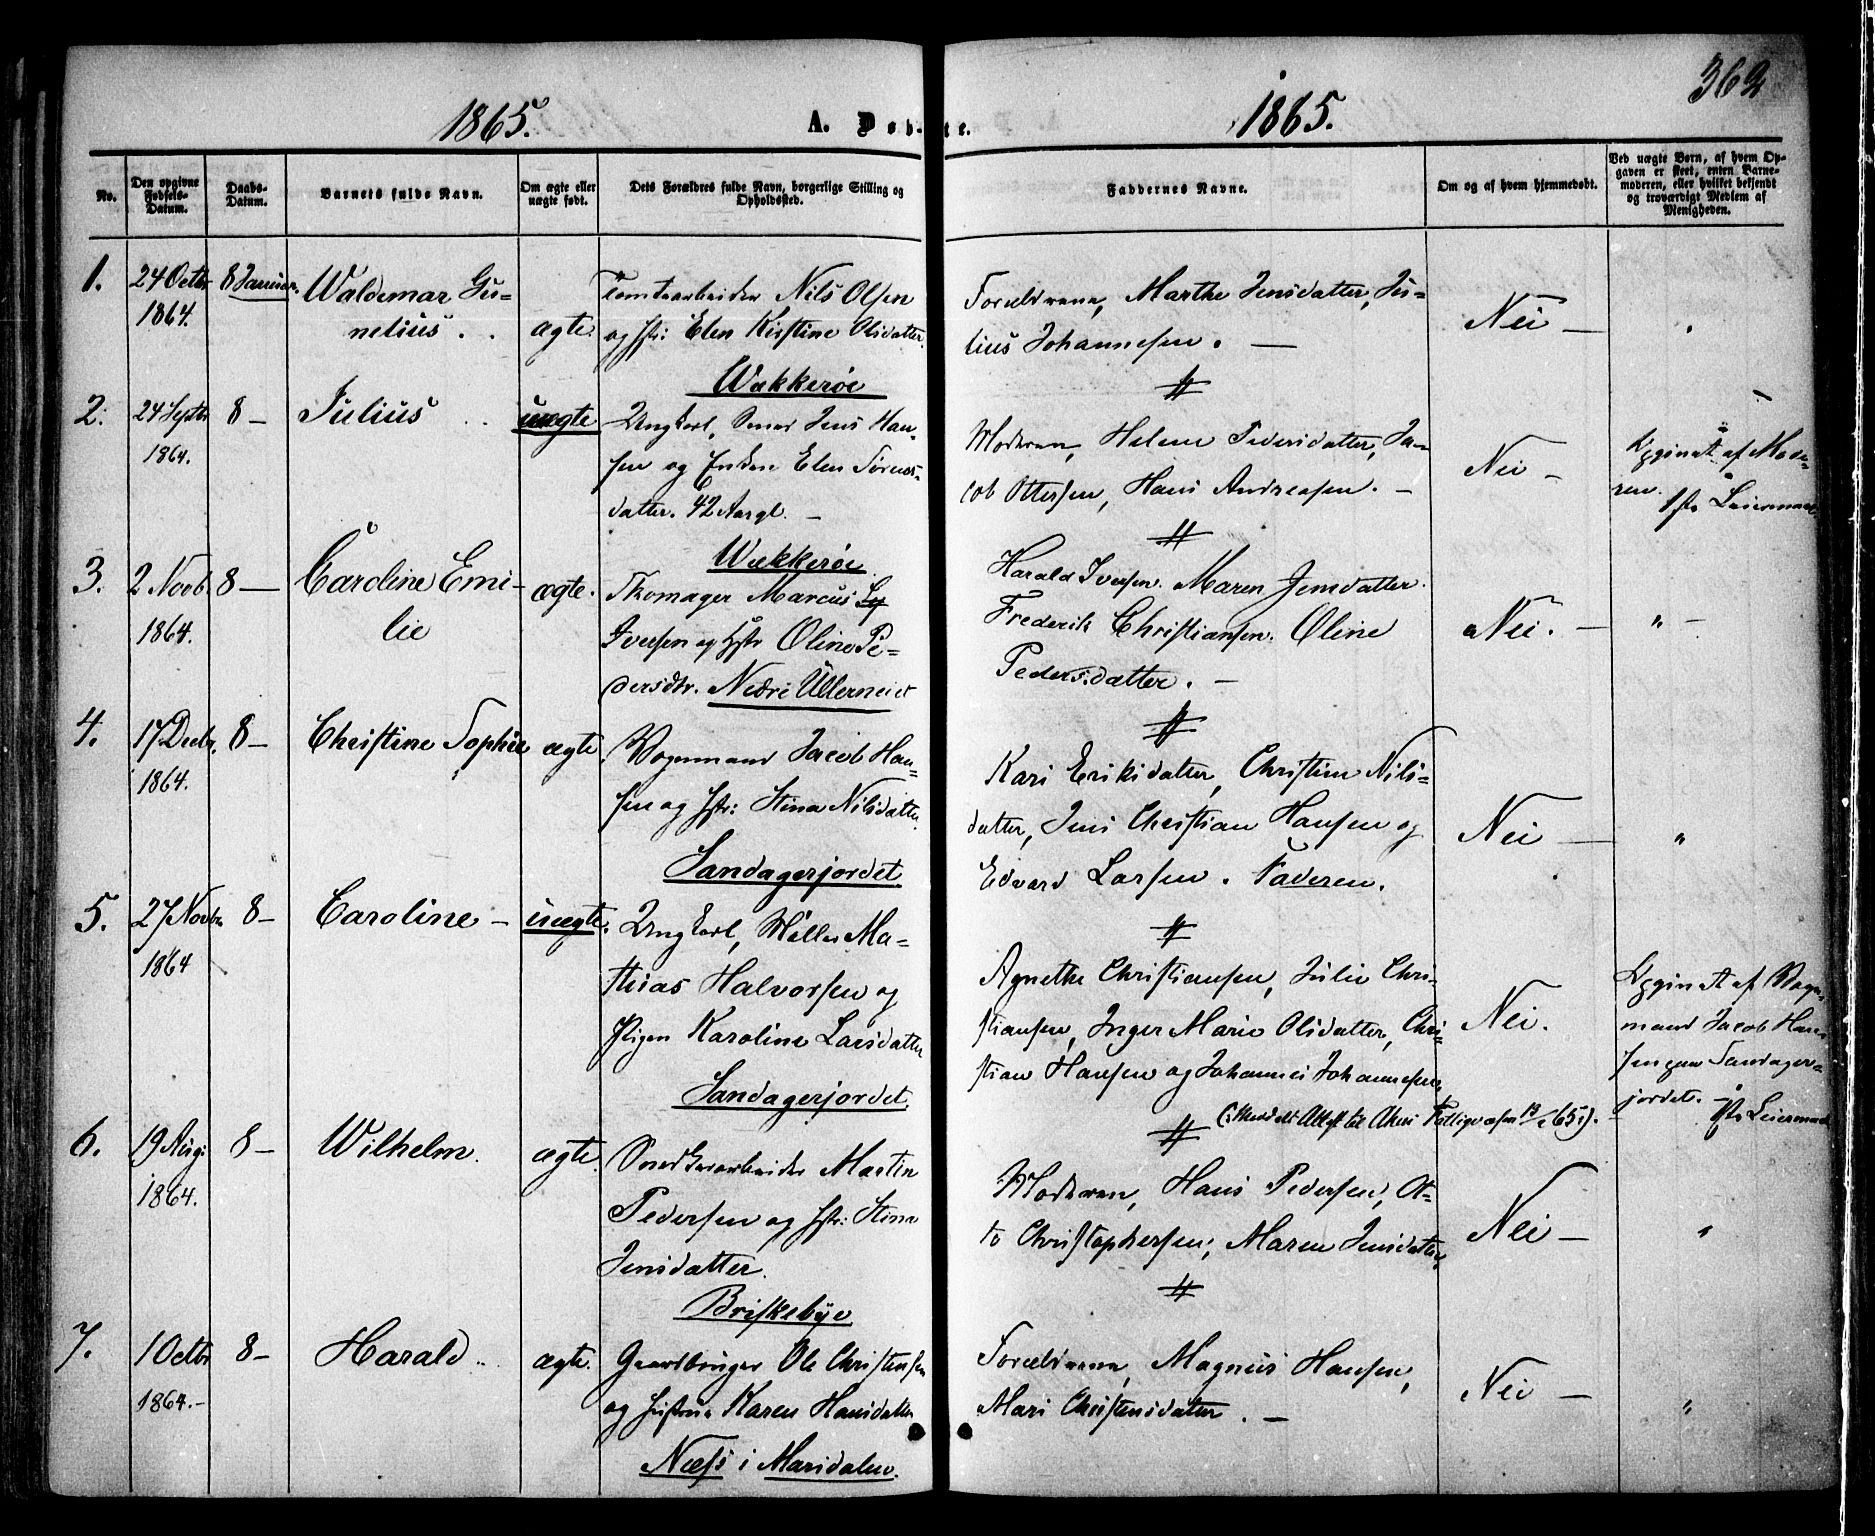 362
1865.
A. Døb-te.
1865.
No.
Den opgivne Fødsels-Datum.
Daabs-Datum.
Barnets fulde Navn.
Om ægte eller uægte født.
Dets Forældres fulde Navn, borgerlige Stilling og Opholdssted.
Faddernes Navne.
Om og af hvem hjemmedøbt.
Ved uægte Børn, af hvem Opgaven er skeet, enten Barnemoderen, eller hvilket bekjendt og troværdigt Medlem af Menigheden.
1.
24 Octbr
1864.
8 Januar.
Waldemar Gu-
nelius.
ægte.
Tomtearbeider Nils Olsen
og Hstr: Elen Kirstine Olsdatter.
Wækkerøe
Forældrene, Marthe Jensdatter, Ju-
lius Johannesen. —
Nei —
2.
24 Septbr
1864.
8 —
Julius
uægte
Ungkarl, Smed Jens Han-
sen og Enken Elen Sørens-
datter. 42 Aar gl. —
Wækkerøe
Moderen, Helene Pedersdatter, Ja-
cob Ottersen, Hans Andreasen. —
Nei —
Opgivet af Mode-
ren.
1ste Leiermaal
3.
2 Novb.
1864.
8 —
Caroline Emi-
lie
ægte.
Skomager Marcus
Iversen og Hstr Oline Pe-
dersdtr. Nedre Ullerneiet
Harald Iversen. Maren Jensdatter.
Frederik Christiansen. Oline
Pedersdatter. —
Nei. —
" —
4.
17 Decbr.
1864.
8 —
Christine Sophie
ægte
Vognmand Jacob Han-
sen og Hstr: Stina Nilsdatter.
Sandagerjordet.
Kari Eriksdatter, Christine Nils-
datter, Jens Christian Hansen og
Edvard Larsen. Faderen.
Nei —
"
5.
27 Novbr
1864
8 —
Caroline —
uægte.
Ungkarl, Møller Ma-
thias Halvorsen og
Pigen Karoline Larsdatter
Sandagerjordet.
Agnethe Christiansen, Julie Chri-
stiansen, Inger Marie Olsdatter, Chri-
stian Hansen og Johannes Johannesen.
Nei.
Opgivet af Vogn-
mand Jacob Han-
sen paa Sandager-
jordet. —
1ste Leiermaal
(: Meddelt Attest til Akers Fattigvæsen 13/ 65:).
6.
19 Aug:
1864.
8 —
Wilhelm.
ægte.
Snedkerarbeider Martin
Pedersen og Hstr: Stina
Jensdatter.
Briskebye
Moderen, Hans Pedersen, Ot-
to Christophersen, Maren Jensdatter.
Nei —
"
7.
1 Octbr
1864. —
8 —
Harald
ægte.
Gaardbruger Ole Christensen
og Hustru Karen Hansdatter
Næss i Maridalen.
Forældrene, Magnus Hansen,
Mari Christensdatter. —
Nei —
"